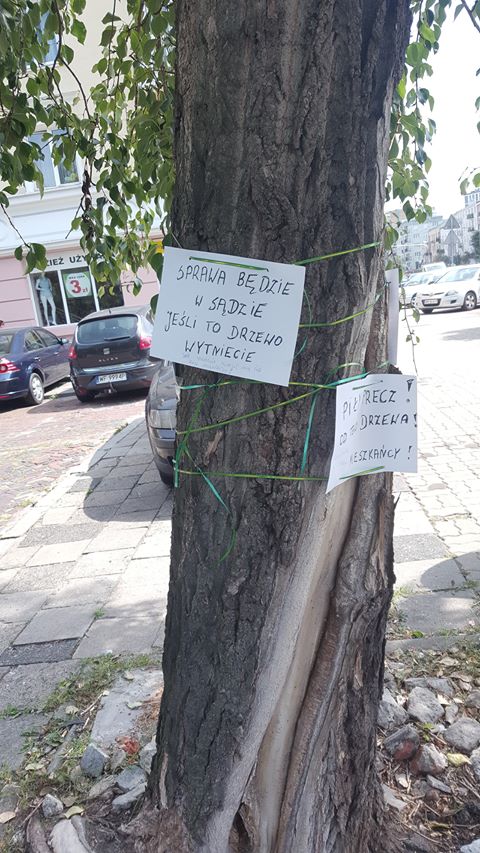 SPRAWA BĘDZIE
W SĄDZIE
JEŚLI TO DRZEWO
WYTNIECIE
PIŁY PRECZ !
OD DRZEWA !
MIESZKAŃCY !
3zł